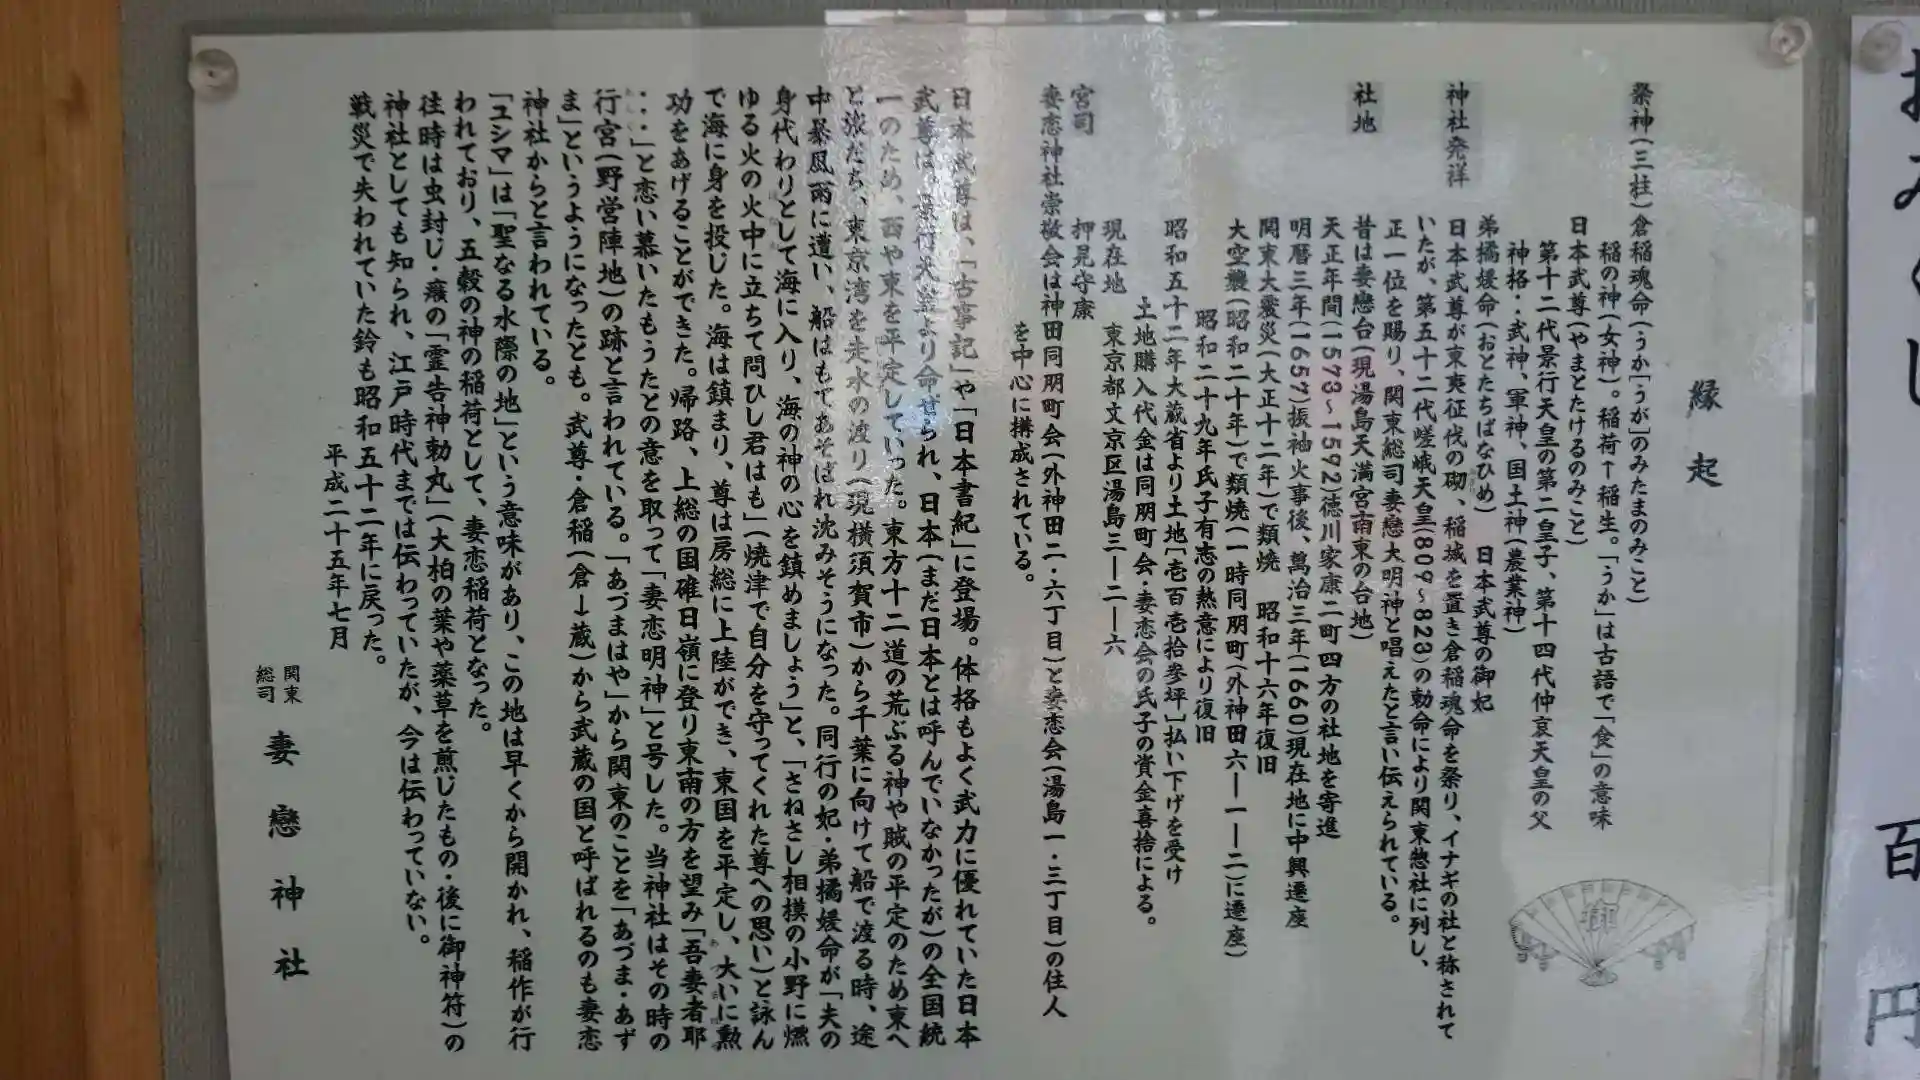 縁起
祭神(三柱)倉稲魂命(うか[うが]のみたまのみこと)
稲の神(女神)。稲荷↑稲生。「うか」は古語で「食」の意味
日本武尊(やまとたけるのみこと)
第十二代景行天皇の第二皇子、第十四代仲哀天皇の父
神格・・武神、軍神、国土神(農業神)
弟橘媛命(おとたちばなひめ) 日本武尊の御妃
神社発祥 日本武尊が東夷征伐の砌、稲城を置き倉稲魂命を祭り、イナギの社と称されて
いたが、第五十二代嵯峨天皇(809~823)の勅命により関東惣社に列し、
正一位を賜り、関東総司妻戀大明神と唱えたと言い伝えられている。
社地 昔は妻戀台(現湯島天満宮南東の台地)
天正年間(1573~1592)徳川家康二町四方の社地を寄進
明暦三年(1657)振袖火事後、萬治三年(1660)現在地に中興遷座
関東大震災(大正十二年)で類焼 昭和十六年復旧
大空襲(昭和二十年)で類焼(一時同朋町(外神田六―一―二)に遷座)
昭和二十九年氏子有志の熱意により復旧
昭和五十二年大蔵省より土地[壱百壱拾参坪]払い下げを受け
土地購入代金は同朋町会・妻恋会の氏子の資金喜捨による。
現在地 東京都文京区湯島三―二―六
宮司 押見守康
妻恋神社崇敬会は神田同朋町会(外神田二・六丁目)と妻恋会(湯島一・三丁目)の住人
を中心に構成されている。
日本武尊は、「古事記」や「日本書紀」に登場。体格もよく武力に優れていた日本
武尊は、景行天皇より命ぜられ、日本(まだ日本とは呼んでいなかったが)の全国統
一のため、西や東を平定していった。東方十二道の荒ぶる神や賊の平定のため東へ
と旅だち、東京湾を走水の渡り(現横須賀市)から千葉に向けて船で渡る時、途
中暴風雨に遭い、船はもてあそばれ沈みそうになった。同行の妃・弟橘媛命が「夫の
身代わりとして海に入り、海の神の心を鎮めましょう」と、「さねさし相摸の小野に燃
ゆる火の火中に立ちて問ひし君はも」(焼津で自分を守ってくれた尊への思い)と詠ん
で海に身を投じた。海は鎮まり、尊は房総に上陸ができ、東国を平定し、大いに勲
功をあげることができた。帰路、上総の国碓日嶺に登り東南の方を望み「吾妻者耶
・・・」と恋い慕いたもうたとの意を取って「妻恋明神」と号した。当神社はその時の
行宮(野営陣地)の跡と言われている。「あづまはや」から関東のことを「あづま・あず
ま」というようになったとも。武尊・倉稲(倉→蔵)から武蔵の国と呼ばれるのも妻恋
神社からと言われている。
「ユシマ」は「聖なる水際の地」という意味があり、この地は早くから開かれ、稲作が行
われており、五穀の神の稲荷として、妻恋稲荷となった。
往時は虫封じ・癪の「霊告神勅丸」(大柏の葉や薬草を煎じたもの・後に御神符)の
神社としても知られ、江戸時代までは伝わっていたが、今は伝わっていない。
戦災で失われていた鈴も昭和五十二年に戻った。
平成二十五年七月
関東
総司 妻戀神社
百円